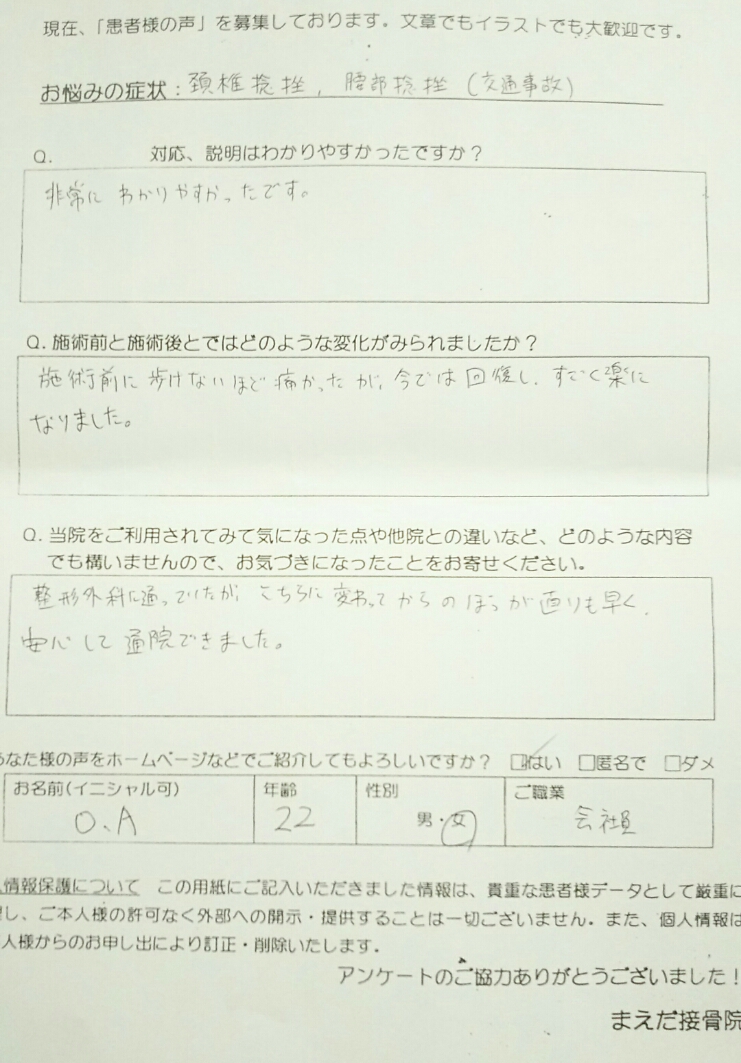 現在、「患者様の声」を募集しております。文章でもイラストでも大歓迎です。
お悩みの症状：頚椎捻挫，腰部捻挫（交通事故）
Q. 対応、説明はわかりやすかったですか？
非常にわかりやすかったです。
Q. 施術前と施術後とではどのような変化がみられましたか？
施術前に歩けないほど痛かったが、今では回復し、すごく楽に
なりました。
Q. 当院をご利用されてみて気になった点や他院との違いなど、どのような内容
でも構いませんので、お気づきになったことをお寄せください。
整形外科に通っていたが、こちらに変わってからのほうが直りも早く、
安心して通院できました。
あなた様の声をホームページなどでご紹介してもよろしいですか？ □はい □匿名で □ダメ
お名前(イニシャル可) 年齢 性別 ご職業
O.A 22 男・女 会社員
人情報保護について この用紙にご記入いただきました情報は、貴重な患者様データとして厳重に
理し、ご本人様の許可なく外部への開示・提供することは一切ございません。また、個人情報は
人様からのお申し出により訂正・削除いたします。
アンケートのご協力ありがとうございました！
まえだ接骨院